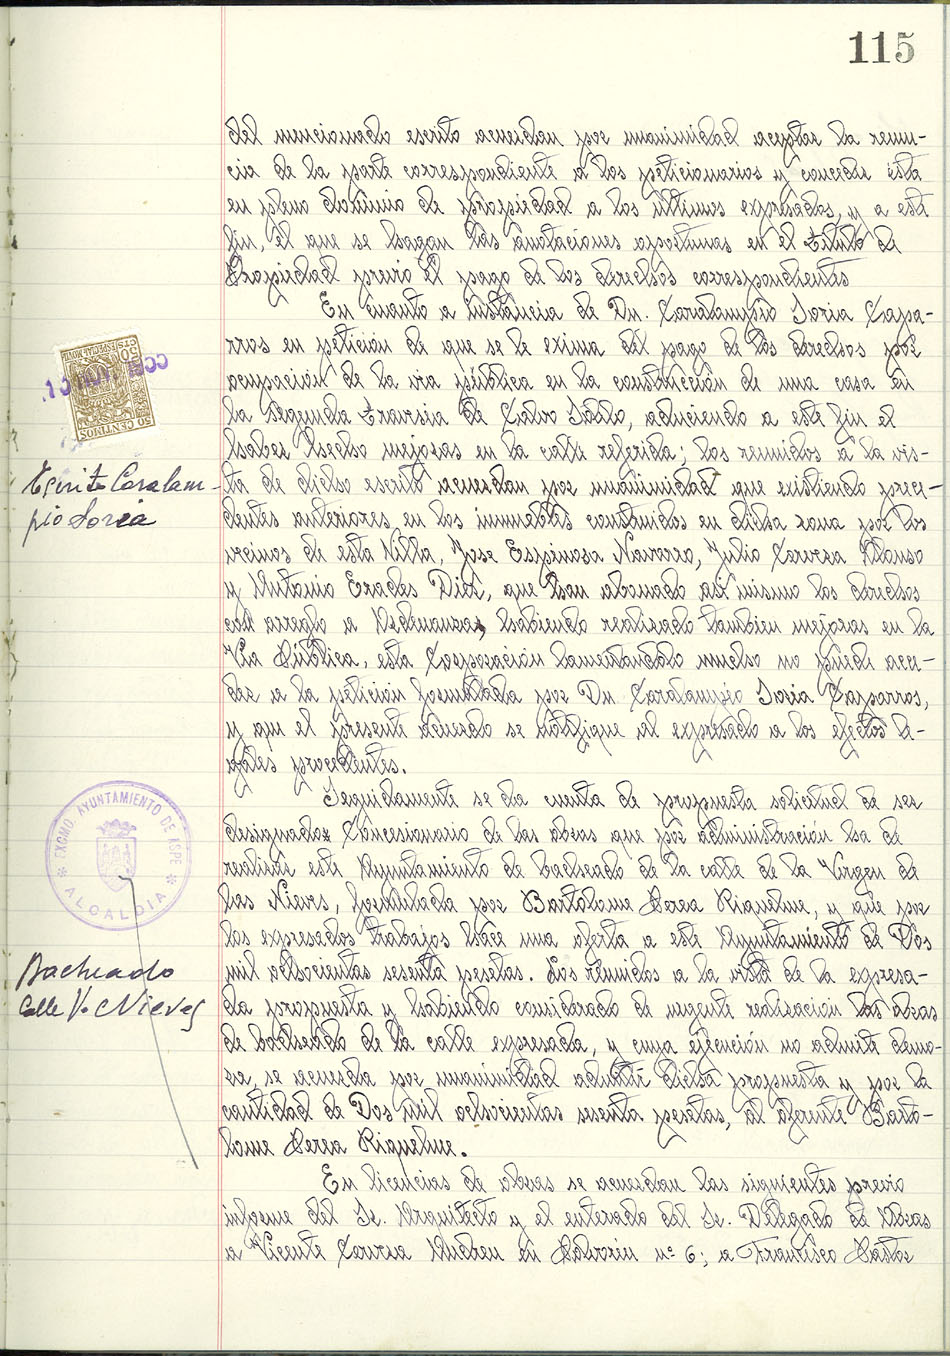 115
del mencionado escrito acuerdan por unanimidad aceptar la renun-
cia de la parte correspondiente a los peticionarios y conceder ésta
en pleno dominio de propiedad a los últimos expresados, y a este
fin, el que se hagan las anotaciones oportunas en el Título de
Propiedad previo el pago de los derechos correspondientes
En cuanto a instancia de Dn. Caralampio Soria Capa-
rros en petición de que se le exima del pago de los derechos por
ocupación de la via pública en la construcción de una casa en
la Segunda Travesia de Calvo Sotelo, aduciendo a este fin el
haber hecho mejoras en la calle referida; los reunidos a la vis-
ta de dicho escrito acuerdan por unanimidad que existiendo prece-
dentes anteriores en los inmuebles construidos en dicha zona por los
vecinos de esta Villa, Jose Espinosa Navarro, Julio Cervera Alonso
y Antonio Erades Diez, que han abonado asi mismo los derechos
con arreglo a Ordenanzas, habiendo realizado tambien mejoras en la
Via Pública, esta Corporación lamentandolo mucho no puede acce-
der a la petición formulada por Dn Caralampio Soria Caparros,
y que el presente acuerdo se notifique al expresado a los efectos le-
gales procedentes.
Seguidamente se da cuenta de propuesta solicitud de ser
designado Concesionario de las obras que por administración ha de
realizar este Ayuntamiento de bacheado de la calle de la Virgen de
las Nieves, formulada por Bartolome Perea Riquelme, y que por
los expresados trabajos hace una oferta a este Ayuntamiento de Dos
mil ochocientas sesenta pesetas. Los reunidos a la vista de la expresa-
da propuesta y habiendo considerado de urgente realización las obras
de bacheado de la calle expresada, y cuya ejecución no admite demo-
ra, se acuerda por unanimidad admitir dicha propuesta y por la
cantidad de Dos mil ochocientas sesenta pesetas, al oferente Barto-
lome Perea Riquelme.
En licencias de obras se acuerdan las siguientes previo
informe del Sr. Arquitecto y el enterado del Sr. Delegado de Obras
a Vicente Cerrera en nº 6; a Francisco Pastor
50 CENTIMOS
50
CTS ESPECIAL MOVIL
Escrito Caralam-
pio Soria
EXCMO. AYUNTAMIENTO DE ASPE
ALCALDIA
Bacheado
Calle V. Nieves